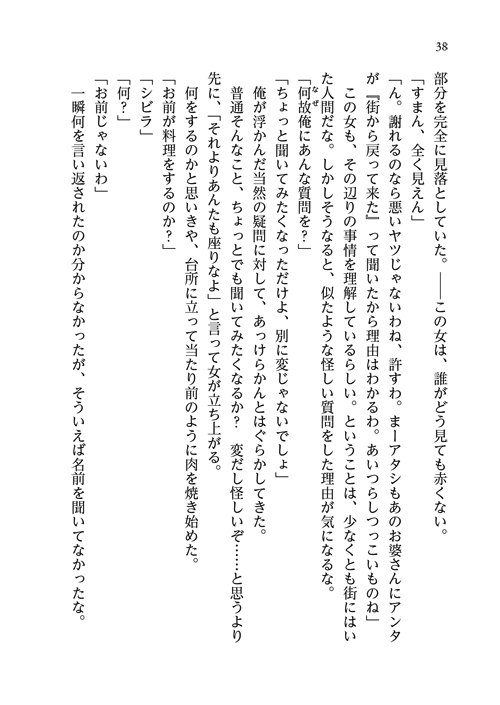 38
部分を完全に見落としていた。――この女は、誰がどう見ても赤くない。
「すまん、全く見えん」
「ん。謝れるのなら悪いヤツじゃないわね、許すわ。まーアタシもあのお婆さんにアンタ
が『街から戻って来た』って聞いたから理由はわかるわ。あいつらしつっこいものね」
この女も、その辺りの事情を理解しているらしい。ということは、少なくとも街にはい
た人間だな。しかしそうなると、似たような怪しい質問をした理由が気になるな。
「何故俺にあんな質問を？」
なぜ
「ちょっと聞いてみたくなっただけよ、別に変じゃないでしょ」
俺が浮かんだ当然の疑問に対して、あっけらかんとはぐらかしてきた。
普通そんなこと、ちょっとでも聞いてみたくなるか？　変だし怪しいぞ……と思うより
先に、「それよりあんたも座りなよ」と言って女が立ち上がる。
何をするのかと思いきや、台所に立って当たり前のように肉を焼き始めた。
「お前が料理をするのか？」
「シビラ」
「何？」
「お前じゃないわ」
一瞬何を言い返されたのか分からなかったが、そういえば名前を聞いてなかったな。